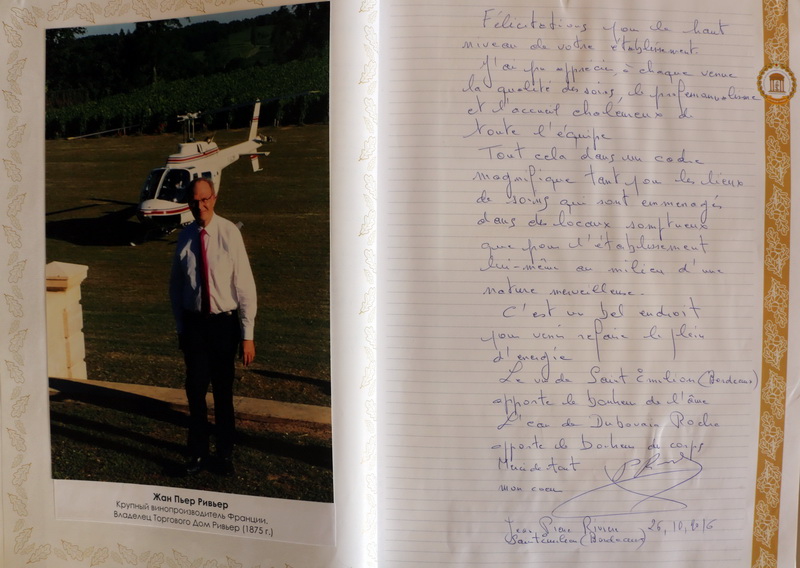 Жан Пьер Ривьер
Крупный винопроизводитель Франции.
Владелец Торгового Дом Ривьер (1875 г.)
Félicitations pour le haut
niveau de votre établissement.
J'ai pu apprécier à chaque venue
la qualité des soins, le professionnalisme
et l'accueil chaleureux de
toute l'équipe
Tout cela dans un cadre
magnifique tant pour les lieux
de soins qui sont emménagés
dans des locaux somptueux
que pour l'établissement
lui-même au milieu d'une
nature merveilleuse.
C'est un bel endroit
pour venir refaire le plein
d'énergie
Le vin de Saint Émilion (Bordeaux)
apporte le bonheur de l'âme
L'eau de Dubovaia Rocha
apporte le bonheur du corps
Merci de tout
mon coeur
Jean Pierre Rivière 26.10.2016
Saint Emilion (Bordeaux)